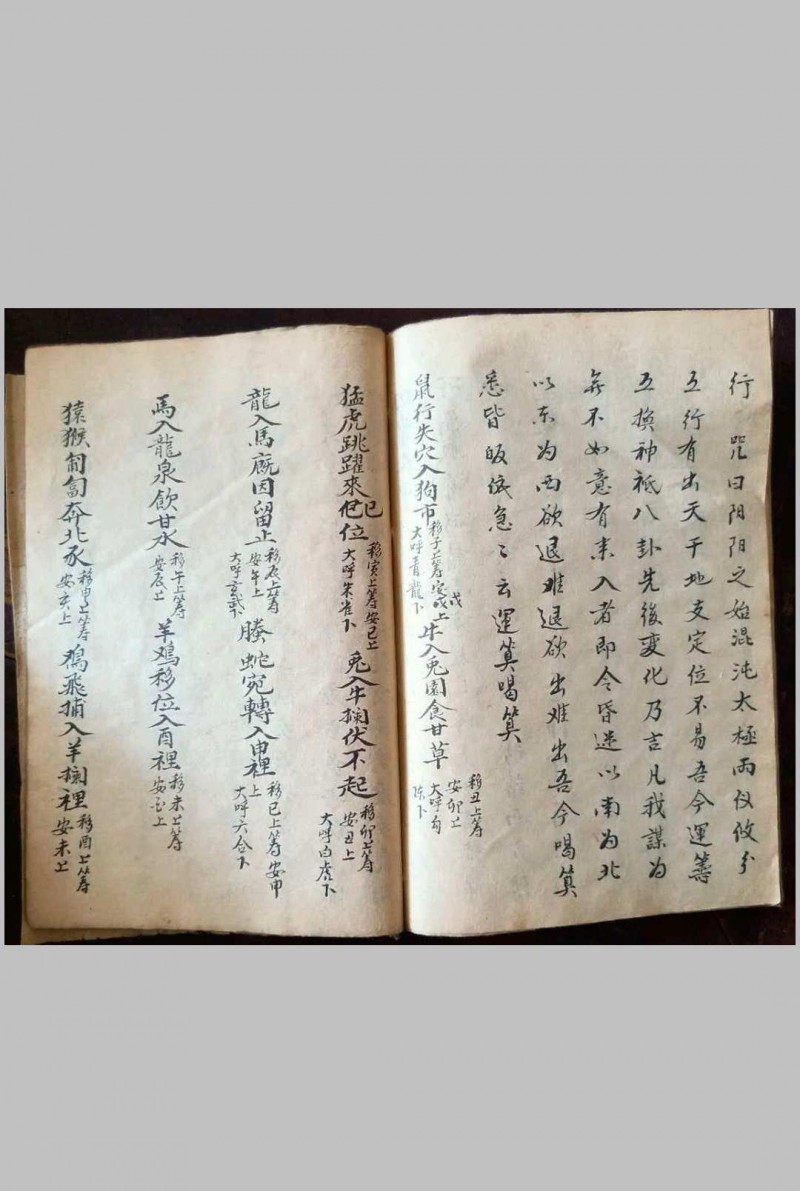 行 咒曰阴阳之始混沌太極兩仪攸分
五行有出天干地支定位不易吾今運籌
互换神祇八卦先後变化乃吉凡我謀为
无不如意有来入者即令昏迷以南为北
以东为西欲退难退欲出难出吾今喝筭
悉皆皈依急〻云運筭喝筭
鼠行失穴入狗市
移子上筹安戌上
戌
大呼青龍下
牛入兎園食甘草
移丑上筹
安卯上
大呼勾
陈下
猛虎跳躍來巳位
移寅上筹安已上
大呼朱雀下
兎入牛欄伏不起
移卯上筹
安丑上
大呼白虎下
龍入馬廐因留止
移辰上筹
安午上
大呼玄武下
螣蛇宛轉入申裡
移巳上筹安申
上
大呼六合下
馬入龍泉飲甘水
移午上筹
安辰上
羊鸡移位入酉裡
移未上筹
安酉上
猿猴匍匐奔北亥
移申上筹
安亥上
鴉飛捕入羊欄裡
移酉上筹
安未上